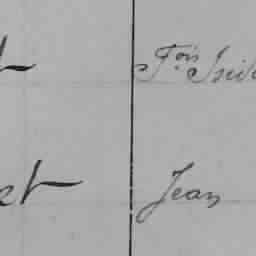 t Fois Isid
et Jean